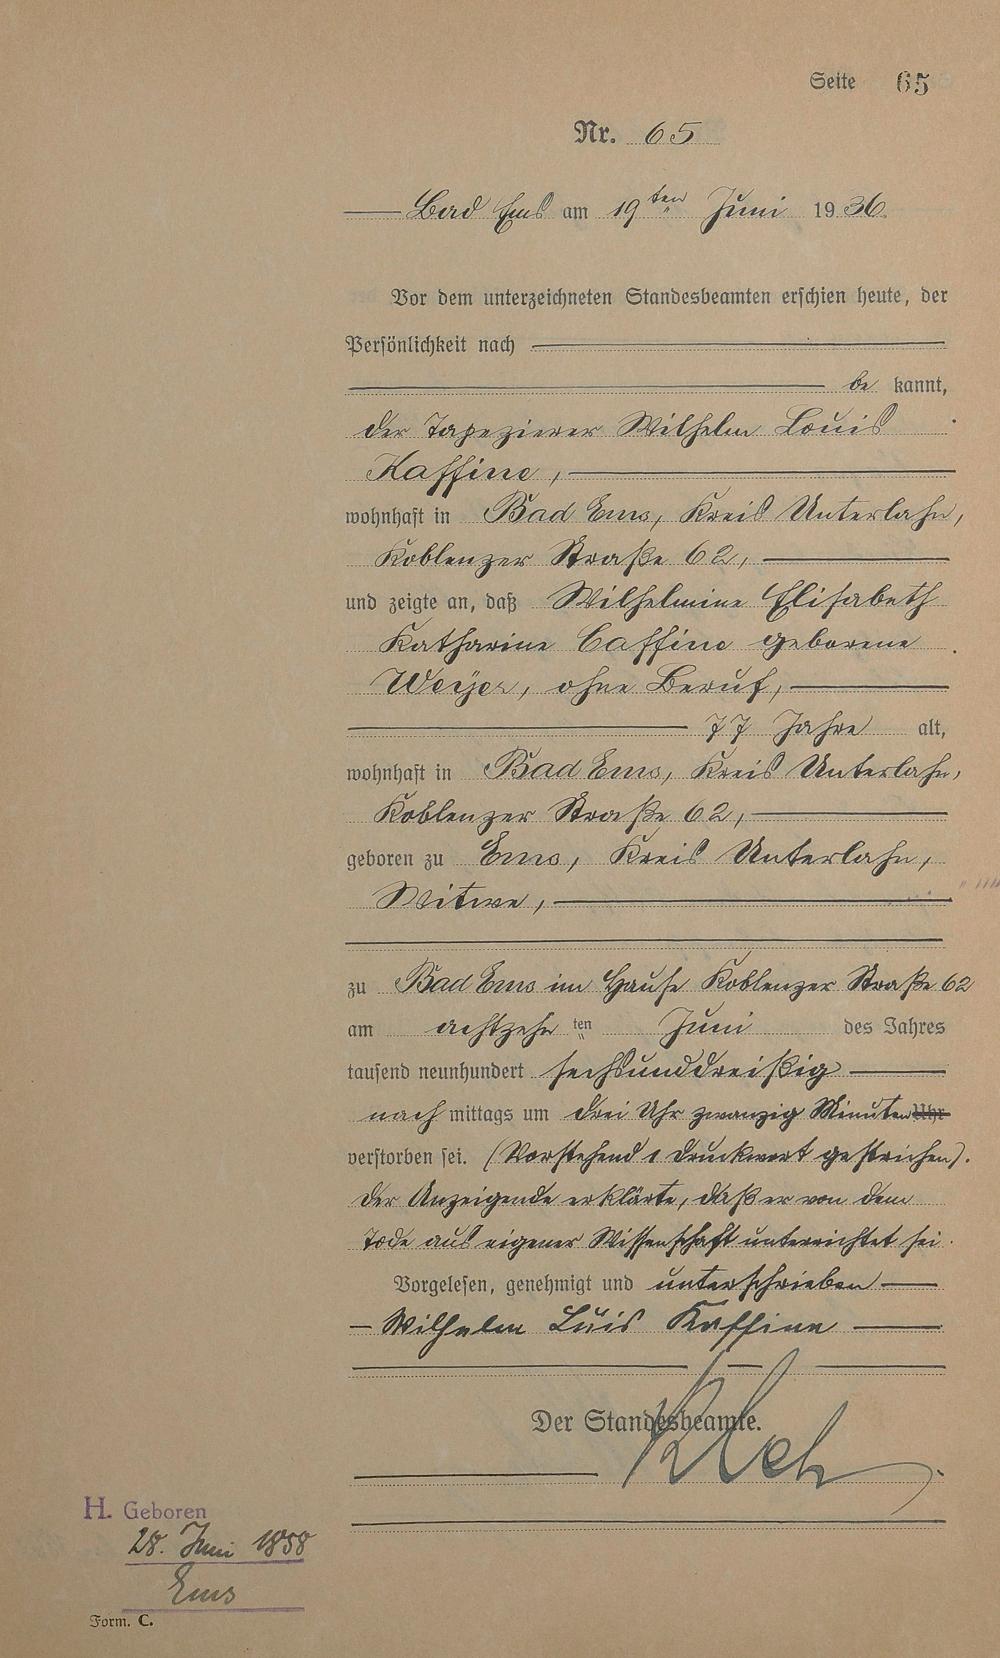 Seite 65
Nr. 65
Bad Ems am 19ten Juni 1936.
Vor dem unterzeichneten Standesbeamten erschien heute, der
Persönlichkeit nach
be kannt,
der Tapezierer Wilhelm Louis
Kaffine,
wohnhaft in Bad Ems, Kreis Unterlahn,
Koblenzer Straße 62,
und zeigte an, daß Wilhelmine Elisabeth
Katharine Caffine geborene
Weyer, ohne Beruf,
77 Jahre alt,
wohnhaft in Bad Ems, Kreis Unterlahn,
Koblenzer Straße 62,
geboren zu Ems, Kreis Unterlahn,
Witwe,
zu Bad Ems im Hause Koblenzer Straße 62
am achtzehn ten Juni des Jahres
tausend neunhundert sechsunddreißig
nach mittags um drei Uhr zwanzig Minuten Uhr
verstorben sei. (Vorstehend 1 Druckwort gestrichen).
Der Anzeigende erklärte, daß er von dem
Tode aus eigener Wissenschaft unterrichtet sei.
Vorgelesen, genehmigt und unterschrieben
Wilhelm Luis Kaffine
Der Standesbeamte.
H. Geboren
28. Juni 1858
Ems
Form. C.